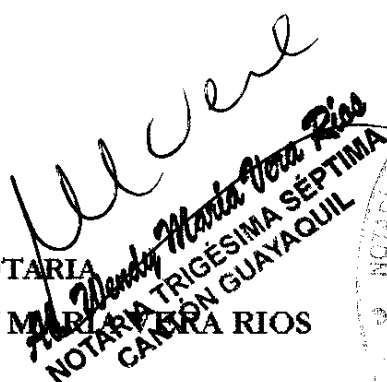 Ab. Wendy María Vera Ríos
NOTARIA TRIGÉSIMA SÉPTIMA
CANTÓN GUAYAQUIL
MARIA VERA RIOS